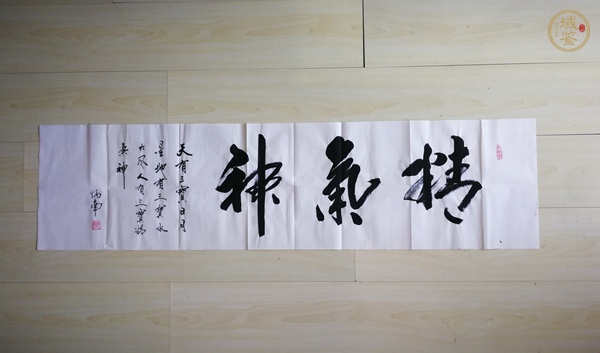 精氣神
天有三寳日月
星地有三寳水
火風人有三寳精
氣神
域鉴